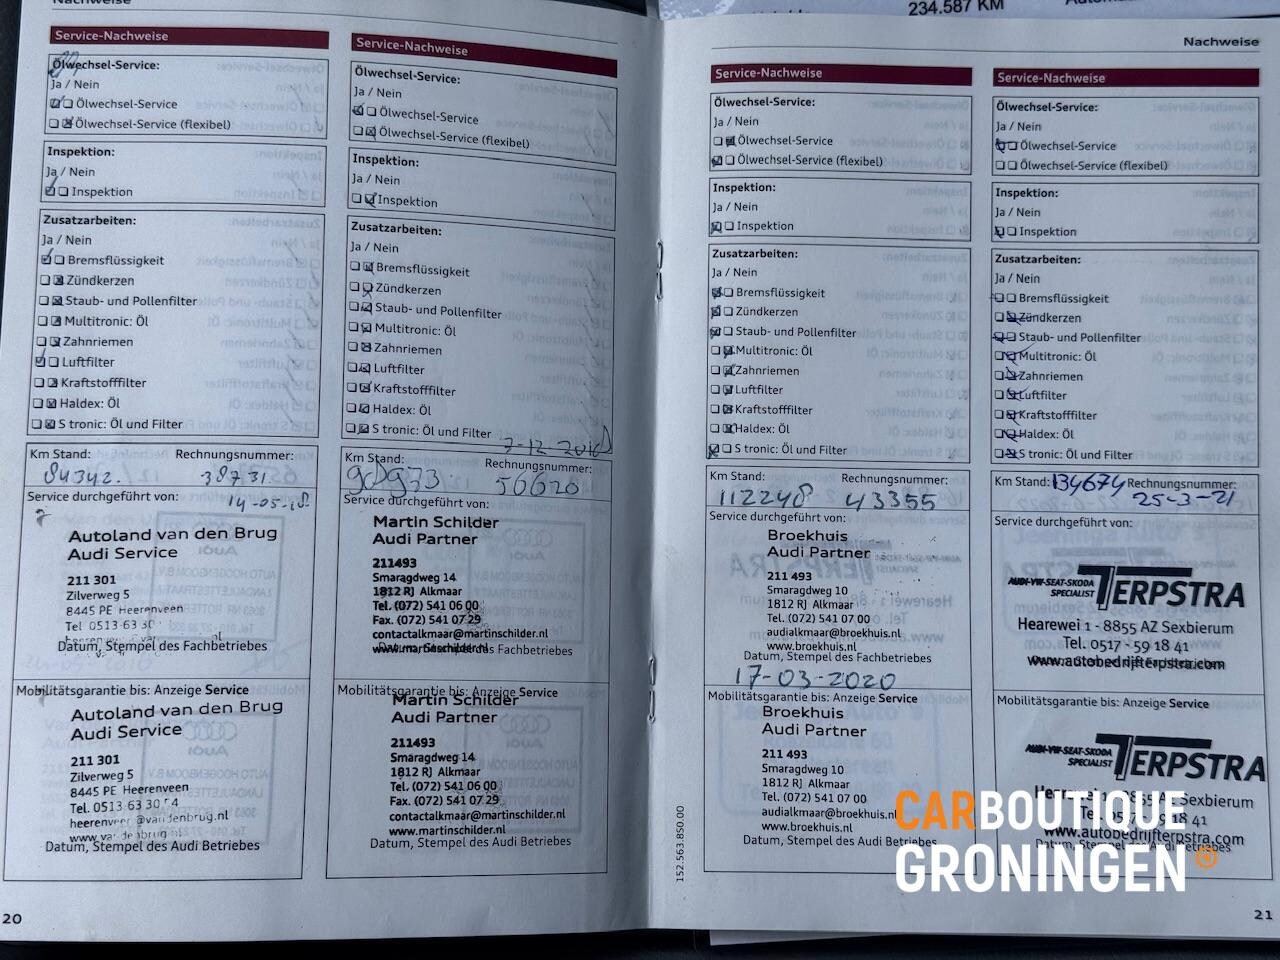 Nachweise
234.587 KM
Nachweise
Service-Nachweise
Ölwechsel-Service:
Ja / Nein
Ölwechsel-Service
Ölwechsel-Service (flexibel)
Inspektion:
Ja / Nein
Inspektion
Zusatzarbeiten:
Ja / Nein
Bremsflüssigkeit
Zündkerzen
Staub- und Pollenfilter
Multitronic: Öl
Zahnriemen
Luftfilter
Kraftstofffilter
Haldex: Öl
S tronic: Öl und Filter
Km Stand: Rechnungsnummer:
84342. 38731.
Service durchgeführt von:
14-05-18
Autoland van den Brug
Audi Service
211 301
Zilverweg 5
8445 PE Heerenveen
Tel 0513 63 30
Datum, Stempel des Fachbetriebes
Mobilitätsgarantie bis: Anzeige Service
Autoland van den Brug
Audi Service
211 301
Zilverweg 5
8445 PE Heerenveen
Tel. 0513 63 30
heerenveen @vandenbrug.nl
www.vandenbrug.nl
Datum, Stempel des Audi Betriebes
20
Service-Nachweise
Ölwechsel-Service:
Ja / Nein
Ölwechsel-Service
Ölwechsel-Service (flexibel)
Inspektion:
Ja / Nein
Inspektion
Zusatzarbeiten:
Ja / Nein
Bremsflüssigkeit
Zündkerzen
Staub- und Pollenfilter
Multitronic: Öl
Zahnriemen
Luftfilter
Kraftstofffilter
Haldex: Öl
S tronic: Öl und Filter
Km Stand: Rechnungsnummer:
56620
Service durchgeführt von:
Martin Schilder
Audi Partner
211493
Smaragdweg 14
1812 RJ Alkmaar
Tel. (072) 541 06 00
Fax. (072) 541 07 29
contactalkmaar@martinschilder.nl
www.martinschilder.nl
Datum, Stempel des Fachbetriebes
Mobilitätsgarantie bis: Anzeige Service
Martin Schilder
Audi Partner
211493
Smaragdweg 14
1812 RJ Alkmaar
Tel. (072) 541 06 00
Fax. (072) 541 07 29
contactalkmaar@martinschilder.nl
www.martinschilder.nl
Datum, Stempel des Audi Betriebes
Service-Nachweise
Ölwechsel-Service:
Ja / Nein
Ölwechsel-Service
Ölwechsel-Service (flexibel)
Inspektion:
Ja / Nein
Inspektion
Zusatzarbeiten:
Ja / Nein
Bremsflüssigkeit
Zündkerzen
Staub- und Pollenfilter
Multitronic: Öl
Zahnriemen
Luftfilter
Kraftstofffilter
Haldex: Öl
S tronic: Öl und Filter
Km Stand: Rechnungsnummer:
112248 43355
Service durchgeführt von:
Broekhuis
Audi Partner
211 493
Smaragdweg 10
1812 RJ Alkmaar
Tel. (072) 541 07 00
audialkmaar@broekhuis.nl
www.broekhuis.nl
Datum, Stempel des Fachbetriebes
17-03-2020
Mobilitätsgarantie bis: Anzeige Service
Broekhuis
Audi Partner
211 493
Smaragdweg 10
1812 RJ Alkmaar
Tel. (072) 541 07 00
audialkmaar@broekhuis.nl
www.broekhuis.nl
Datum, Stempel des Audi Betriebes
152.563.850.00
Service-Nachweise
Ölwechsel-Service:
Ja / Nein
Ölwechsel-Service
Ölwechsel-Service (flexibel)
Inspektion:
Ja / Nein
Inspektion
Zusatzarbeiten:
Ja / Nein
Bremsflüssigkeit
Zündkerzen
Staub- und Pollenfilter
Multitronic: Öl
Zahnriemen
Luftfilter
Kraftstofffilter
Haldex: Öl
S tronic: Öl und Filter
Km Stand: 134674 Rechnungsnummer:
25-3-21
Service durchgeführt von:
AUDI-VW-SEAT-SKODA
SPECIALIST TERPSTRA
Hearewei 1 - 8855 AZ Sexbierum
Tel. 0517 - 59 18 41
www.autobedrijfterpstra.com
Mobilitätsgarantie bis: Anzeige Service
AUDI-VW-SEAT-SKODA
SPECIALIST TERPSTRA
Hearewei 1 - 8855 AZ Sexbierum
Tel. 0517 - 59 18 41
www.autobedrijfterpstra.com
Datum, Stempel des Audi Betriebes
21
CARBOUTIQUE
GRONINGEN